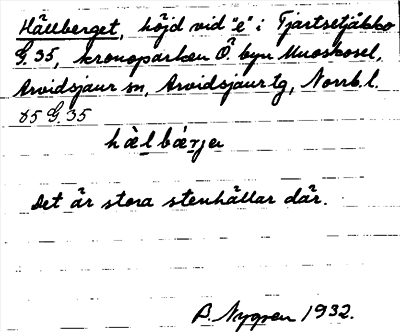 Hällberget, höjd vid "e" i Tjartsetjåkko
G.35, kronoparken Ö. byn Muoskosel,
Arvidsjaur sn, Arvidsjaur tg, Norrb.l.
85 G.35
hälbärje
Det är stora stenhällar där.
B. Nygren 1932.